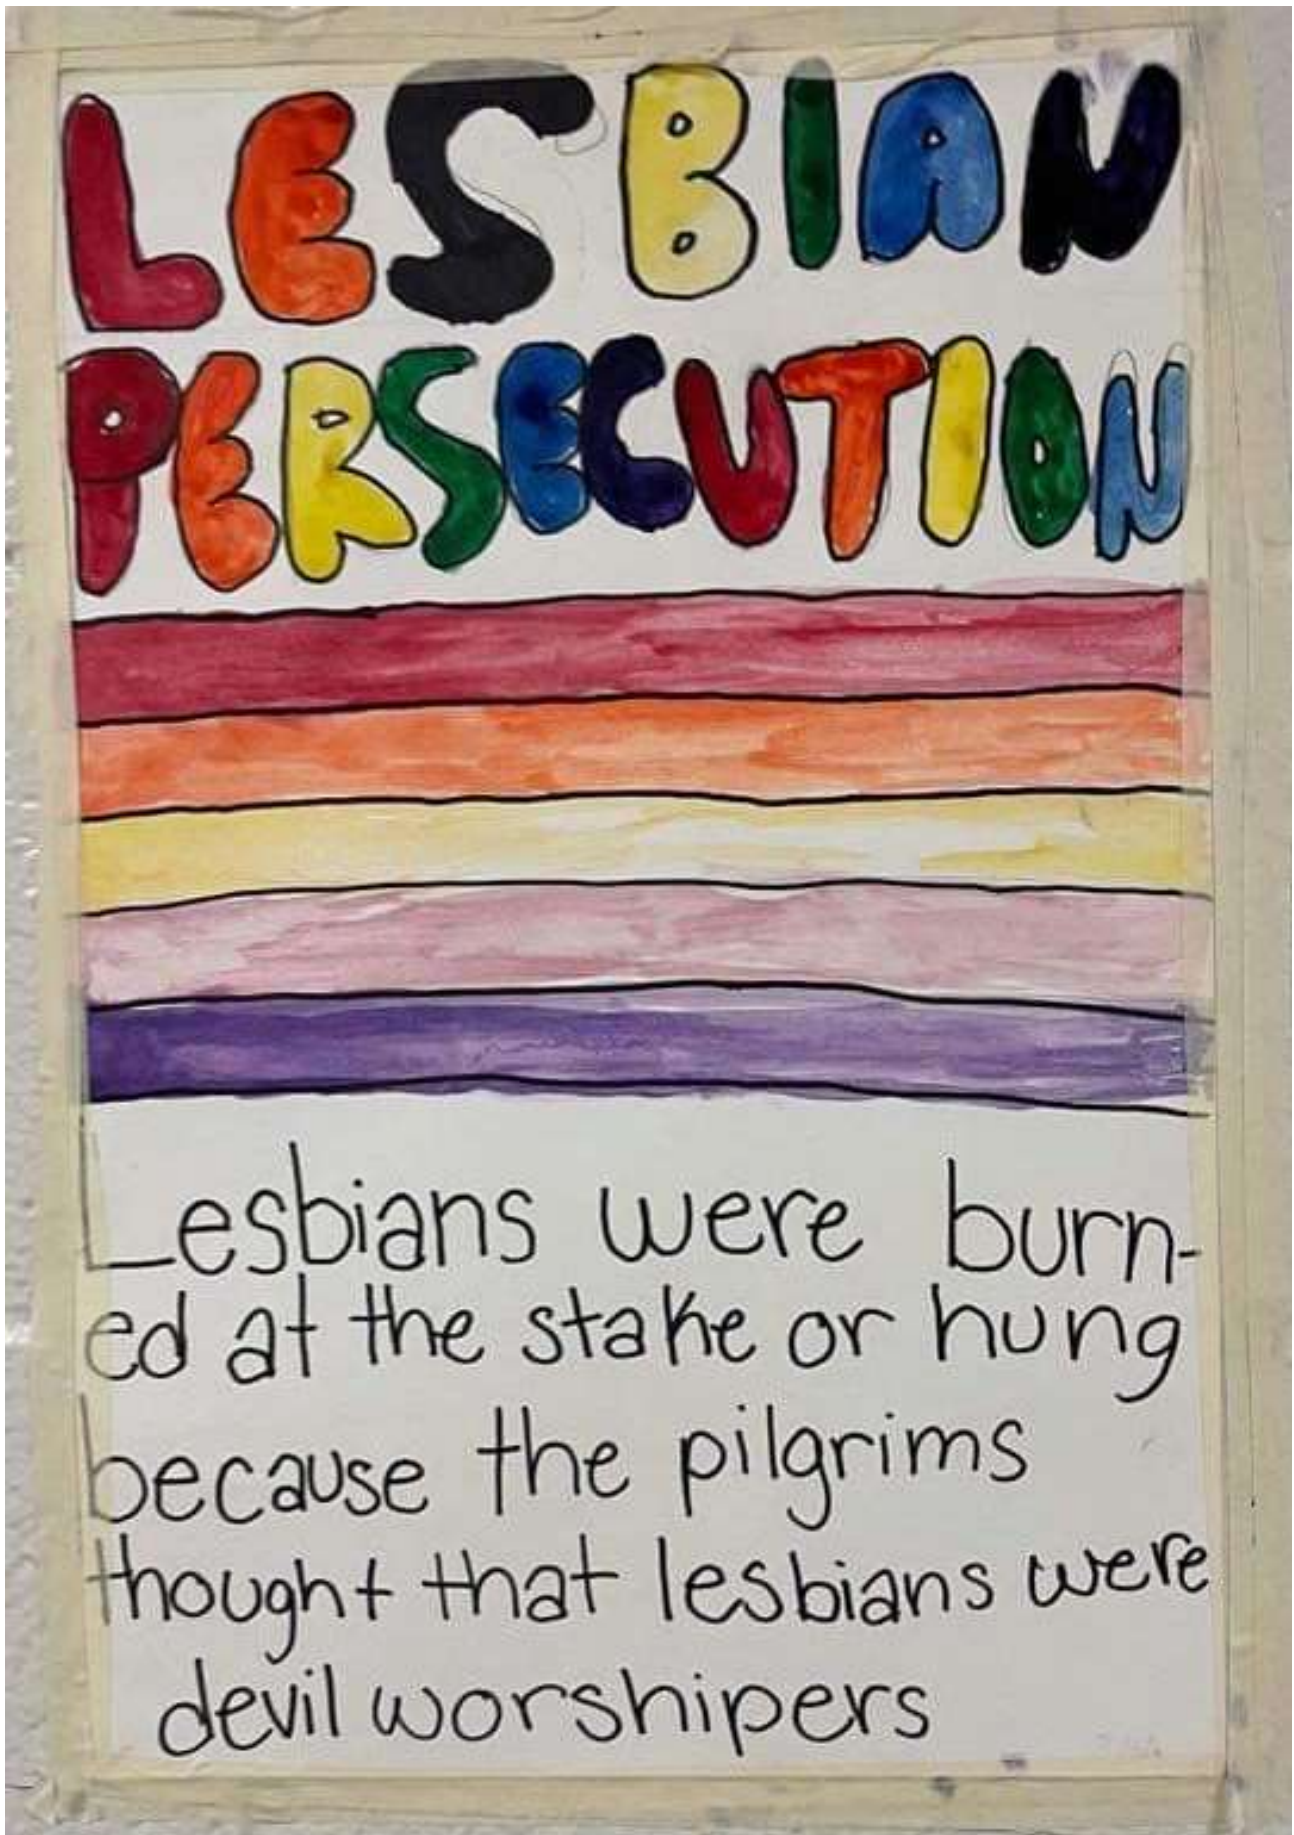 LESBIAN
PERSECUTION
Lesbians were burn-
ed at the stake or hung
because the pilgrims
thought that lesbians were
devil worshipers